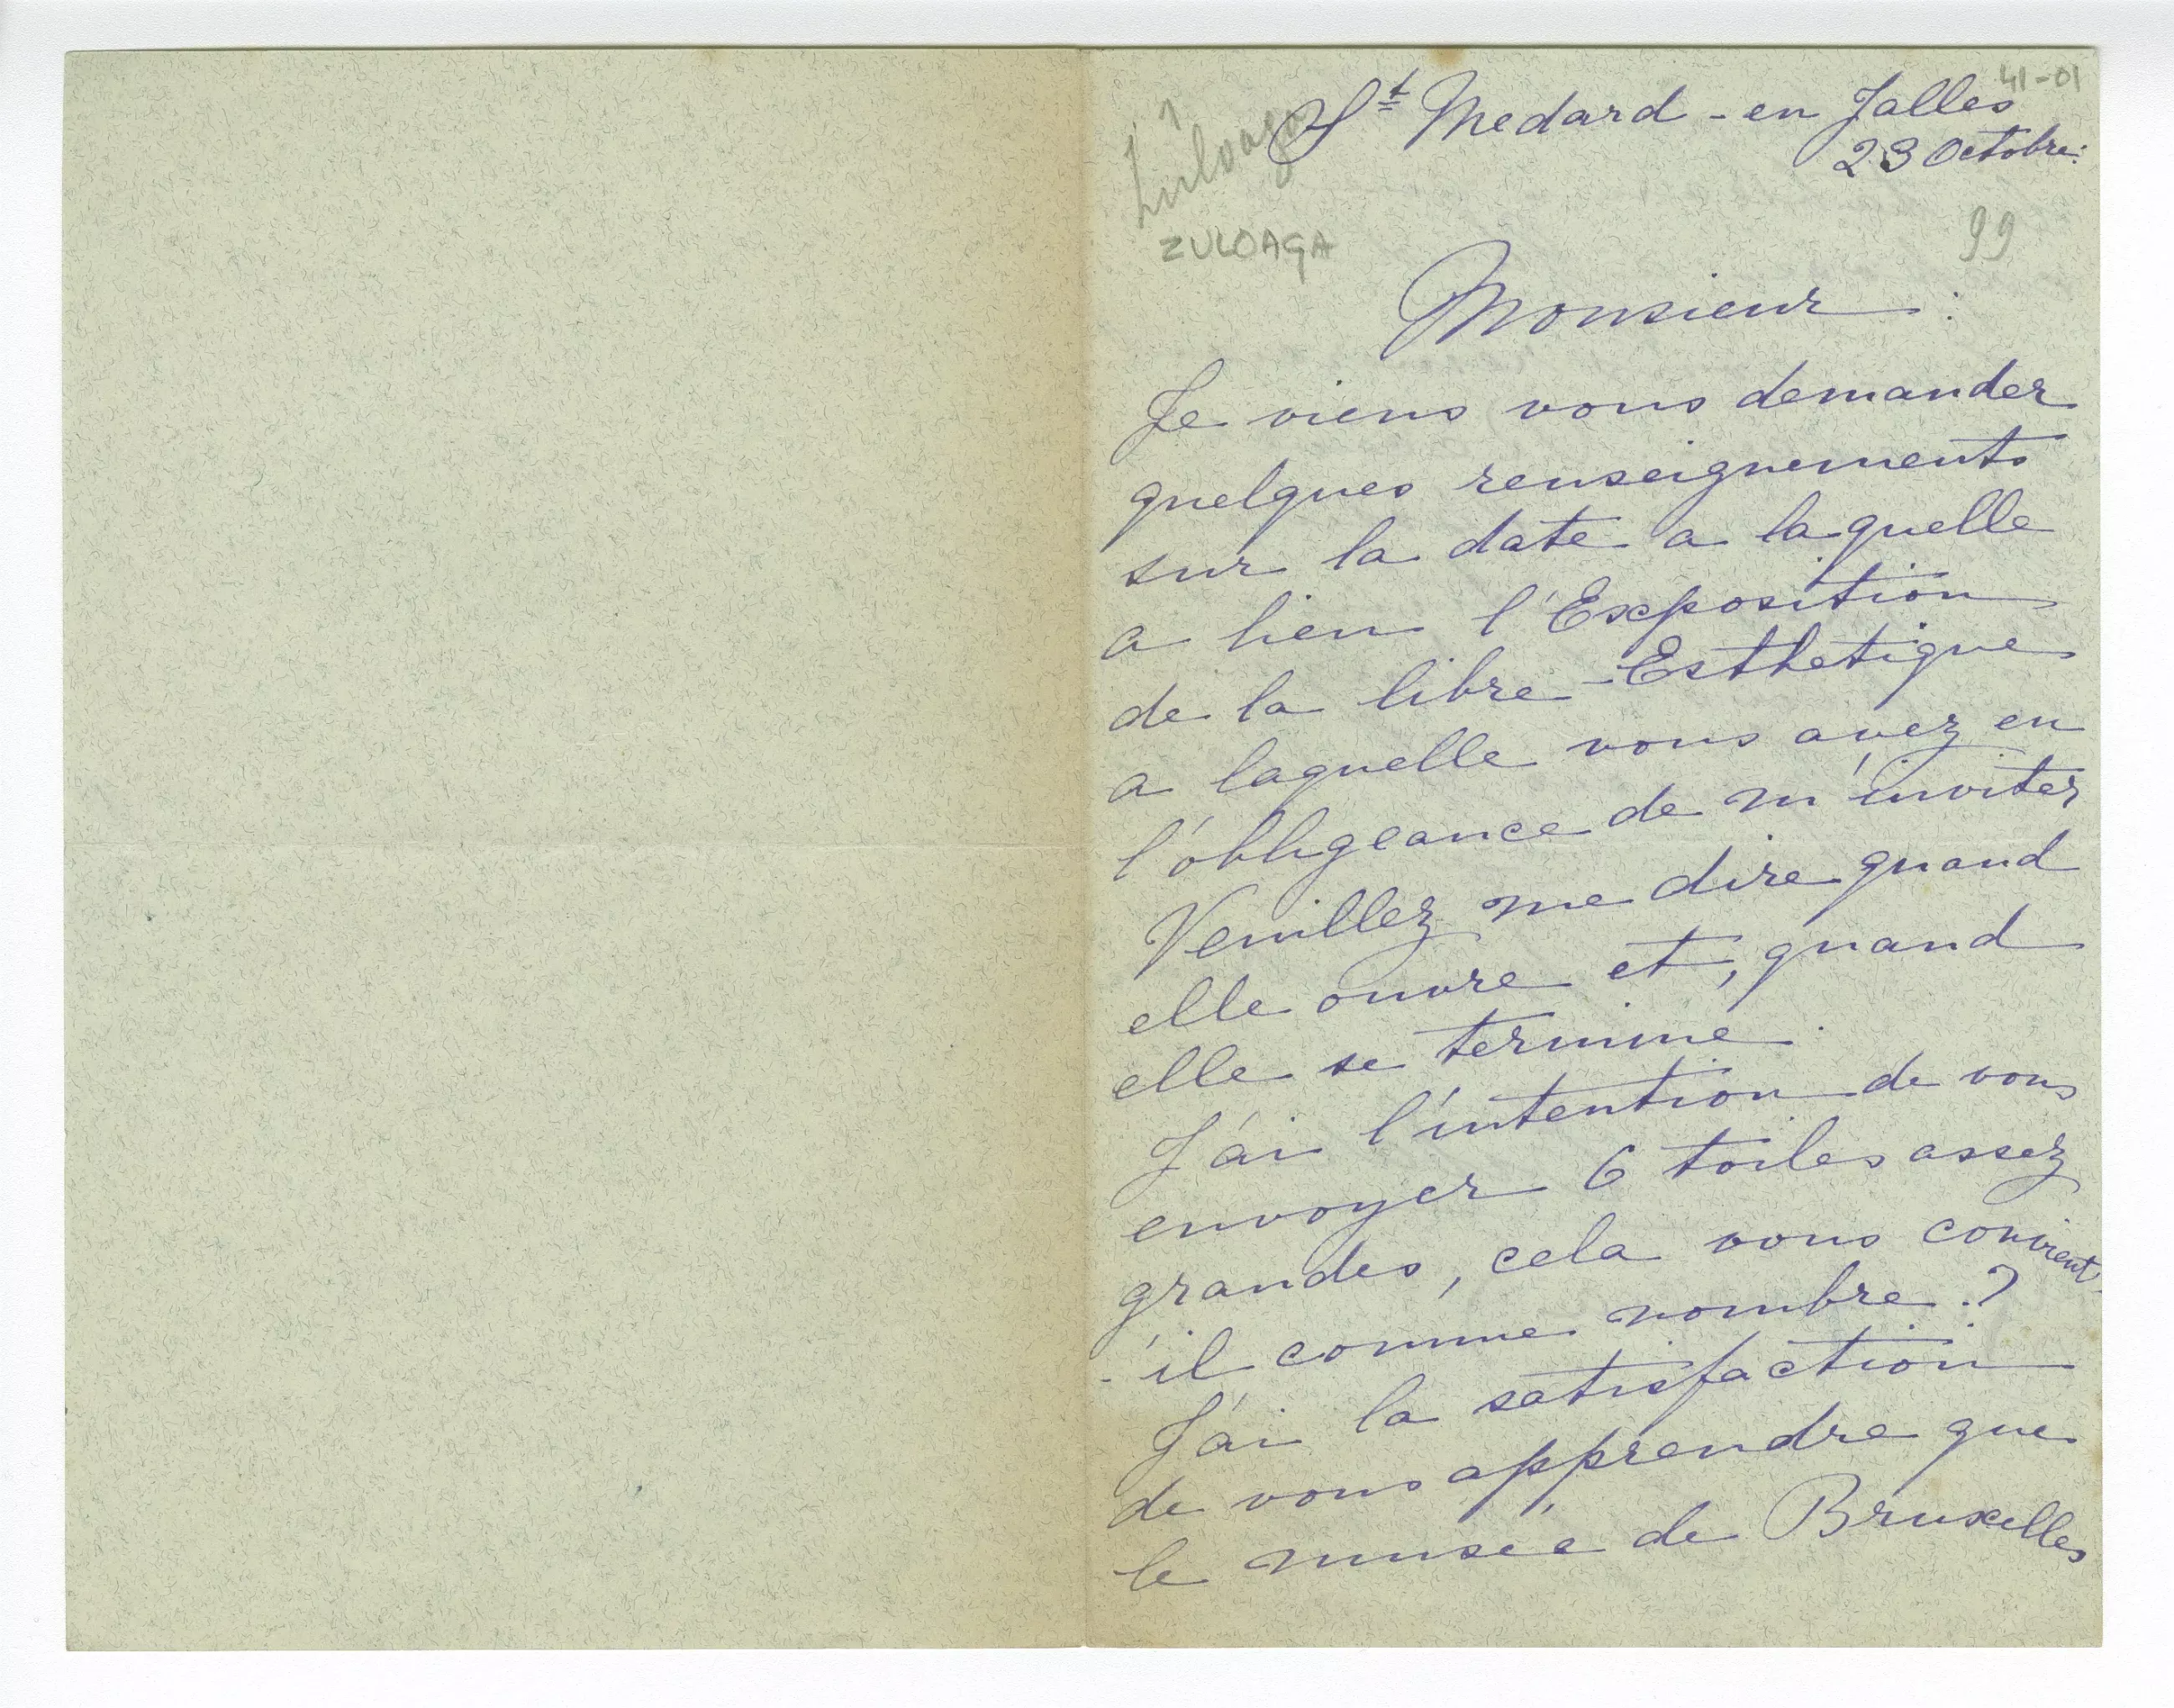 41-01
St Medard - en Jalles
23 Octobre.
Zuloaga
ZULOAGA
99
Monsieur :
Je viens vous demander
quelques renseignements
sur la date a laquelle
a lieu l'Exposition
de la libre - Esthetique
a laquelle vous avez eu
l'obligeance de m'inviter
Veuillez me dire quand
elle ouvre et, quand
elle se termine.
J'ai l'intention de vous
envoyer 6 toiles assez
grandes, cela vous convient-
-il comme nombre.?
J'ai la satisfaction
de vous apprendre que
le musée de Bruxelles